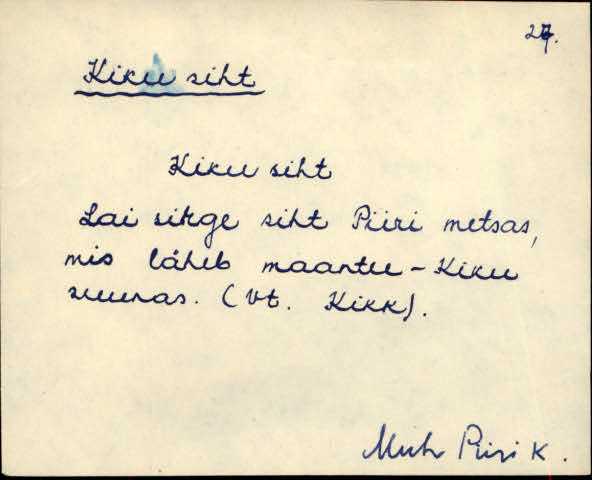 27.
Kiku siht
Kiku siht
Lai sirge siht Piiri metsas,
mis läheb maantee - Kiku
suunas. (Vt. Kikk).
Muh Piiri K.